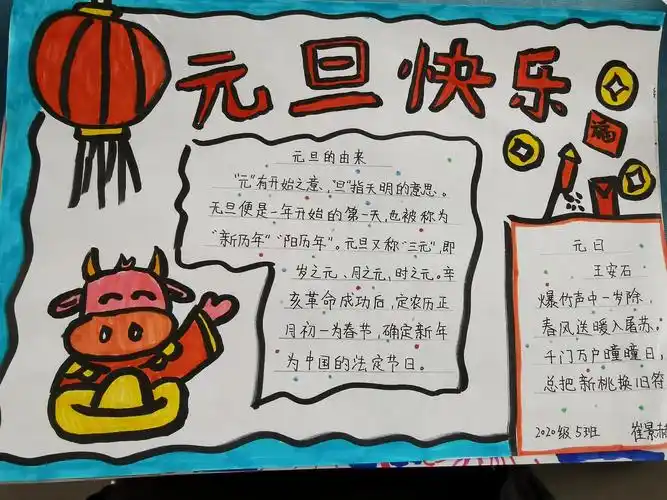 元旦快乐
福
元旦的由来
"元"有开始之意,"旦"指天明的意思。
元旦便是一年开始的第一天,也被称为
"新历年""阳历年"。元旦又称"三元",即
岁之元、月之元,时之元。辛
亥革命成功后,定农历正
月初一为春节,确定新年
为中国的法定节日。
元日
王安石
爆竹声中一岁除,
春风送暖入屠苏。
千门万户曈曈日,
总把新桃换旧符
2020级5班 崔景赫